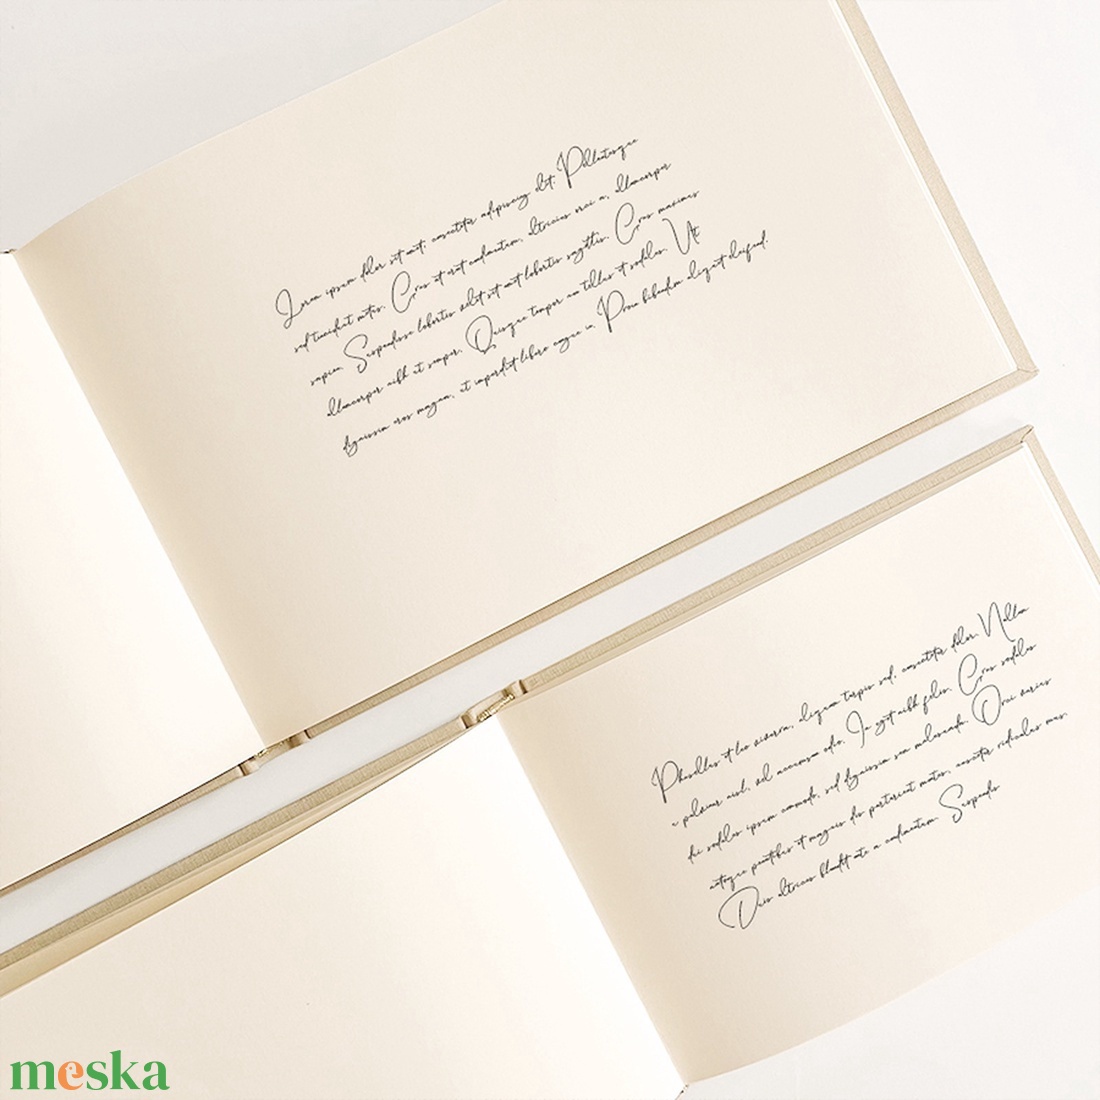 Lorem ipsum dolor sit amet, consectetur adipiscing elit. Pellentesque
sed tincidunt metus. Cras et erat condimentum, ultricies orci a, ullamcorper
sapien. Suspendisse lobortis velit sit amet lobortis sagittis. Cras maximus
ullamcorper nibh at semper. Quisque tempor leo tellus et sodales. Ut
dignissim eros magna, et imperdiet libero augue in. Proin bibendum aliquet eleifend.
Phasellus et leo viverra, aliquam turpis sed, consectetur dolor. Nullam
a pulvinar nisl, vel accumsan odio. In eget nibh felis. Cras sodales
dui sodales ipsum commodo, sed dignissim sem malesuada. Orci varius
natoque penatibus et magnis dis parturient montes, nascetur ridiculus mus.
Duis ultrices blandit ante a condimentum.
meska